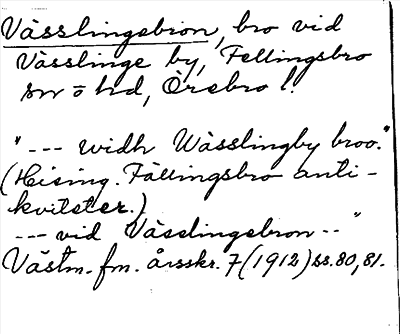 Vässlingebron, bro vid
Vässlinge by, Fellingsbro
sn o hd, Örebro l.
"--- widh Wässlingby broo."
(Hising. Fällingsbro anti-
kviteter.)
--- vid Vässlingebron --"
Västm. fm. årsskr. 7 (1912) ss. 80, 81.